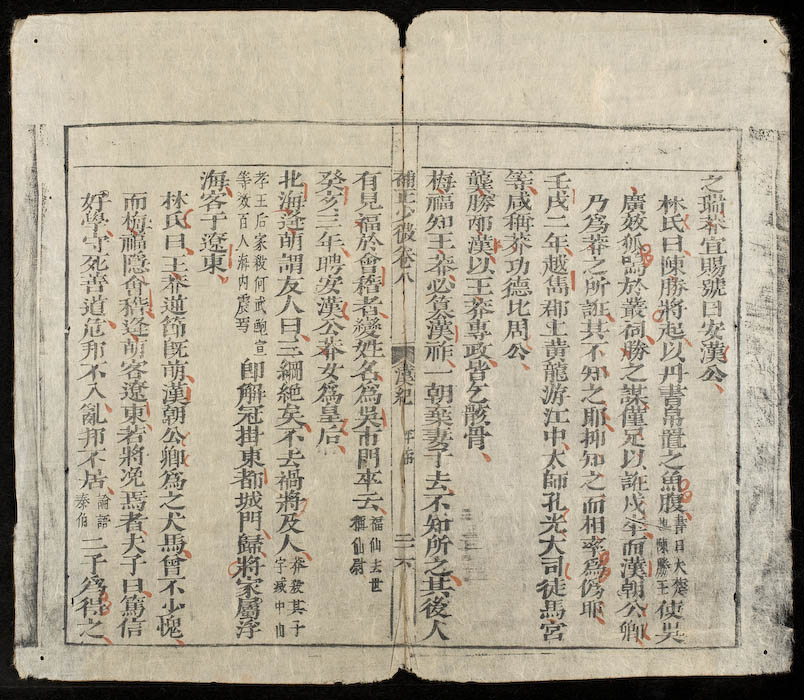 之瑞莽宜賜號曰安漢公
林氏曰陳勝將起以丹書帛置之魚腹書曰大楚興陳勝王使吳
廣效狐鳴於叢祠勝之謀僅足以誑戍卒而漢朝公卿
乃爲莽之所誑其不知之耶抑知之而相率爲僞耶
壬戌二年越雋郡上黃龍游江中太師孔光大司徒馬宮
等咸稱莽功德比周公
龔勝邴漢以王莽專政皆乞骸骨
梅福知王莽必簒漢祚一朝棄妻子去不知所之其後人
補正少微卷八 漢紀 平帝
有見福於會稽者變姓名爲吳市門卒云福仙去世稱仙尉
癸亥三年聘安漢公莽女爲皇后
北海逄萌謂友人曰三綱絶矣不去禍將及人莽殺其子宇滅中山
孝王后家殺何武鮑宣等数百人海内震焉 卽解冠掛東都城門歸將家屬浮
海客于遼東
林氏曰王莽逆節旣萌漢朝公卿爲之犬馬曾不少愧
而梅福隐會稽逄萌客遼東若將凂焉者夫子曰篤信
好學守死善道危邦不入亂邦不居論語泰伯二子爲得之